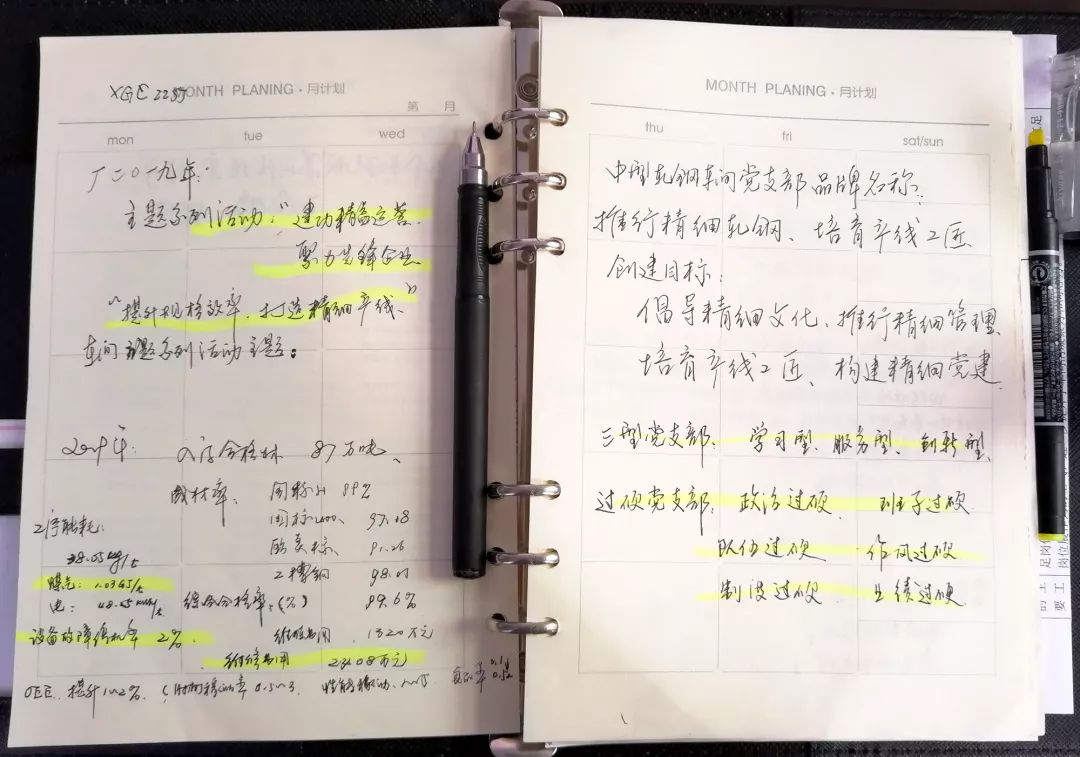 XGC 2235
MONTH PLANING·月计划
第 月
mon tue wed
厂二〇一九年:
主题系列活动:"建功精益运营、
聚力先锋企业
"提升规格效率、打造精细产线"
车间主题系列活动主题:
2019年: 入库合格材 87万吨、
成材率: 国标H 99%
工序能耗: 国标400、 97.08
38.05kg/t 欧美标、 91.26
煤气: 1.03GJ/t 工槽钢 98.01
电: 综合合格率:(%) 99.6%
设备故障停机率 2%
1320万元
维修费用 2308万元
OEE 提升1~2%
MONTH PLANING·月计划
thu fri sat/sun
中型轧钢车间党支部品牌名称:
推行精细轧钢、培育产线工匠
创建目标:
倡导精细文化、推行精细管理、
培育产线工匠、构建精细党建
三型党支部: 学习型、服务型、创新型、
过硬党支部: 政治过硬 班子过硬
队伍过硬 作风过硬
制度过硬 业绩过硬